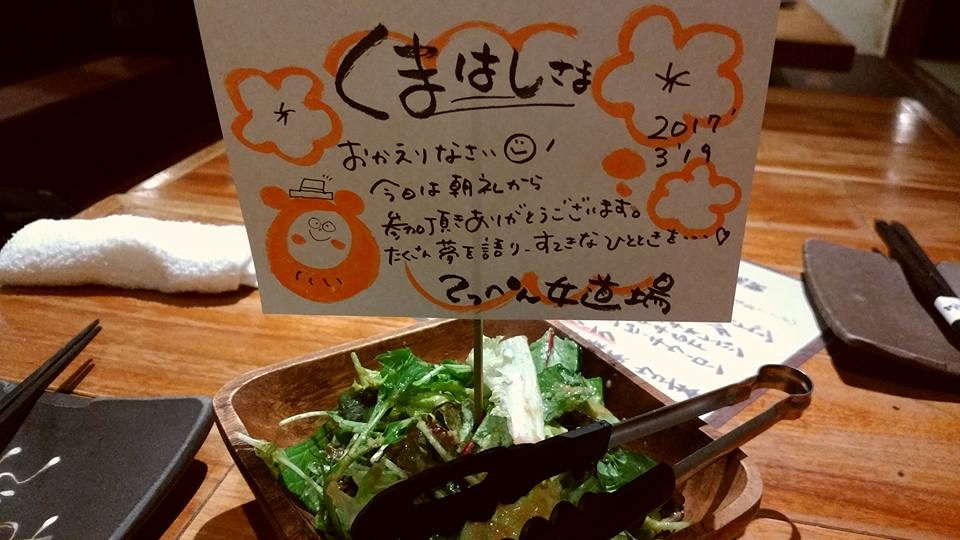 くまはしさま
2017
3'19
おかえりなさい
今日は朝礼から
参加頂きありがとうございます。
たくさん夢を語り、すてきなひとときを…♡
てっぺん女道場